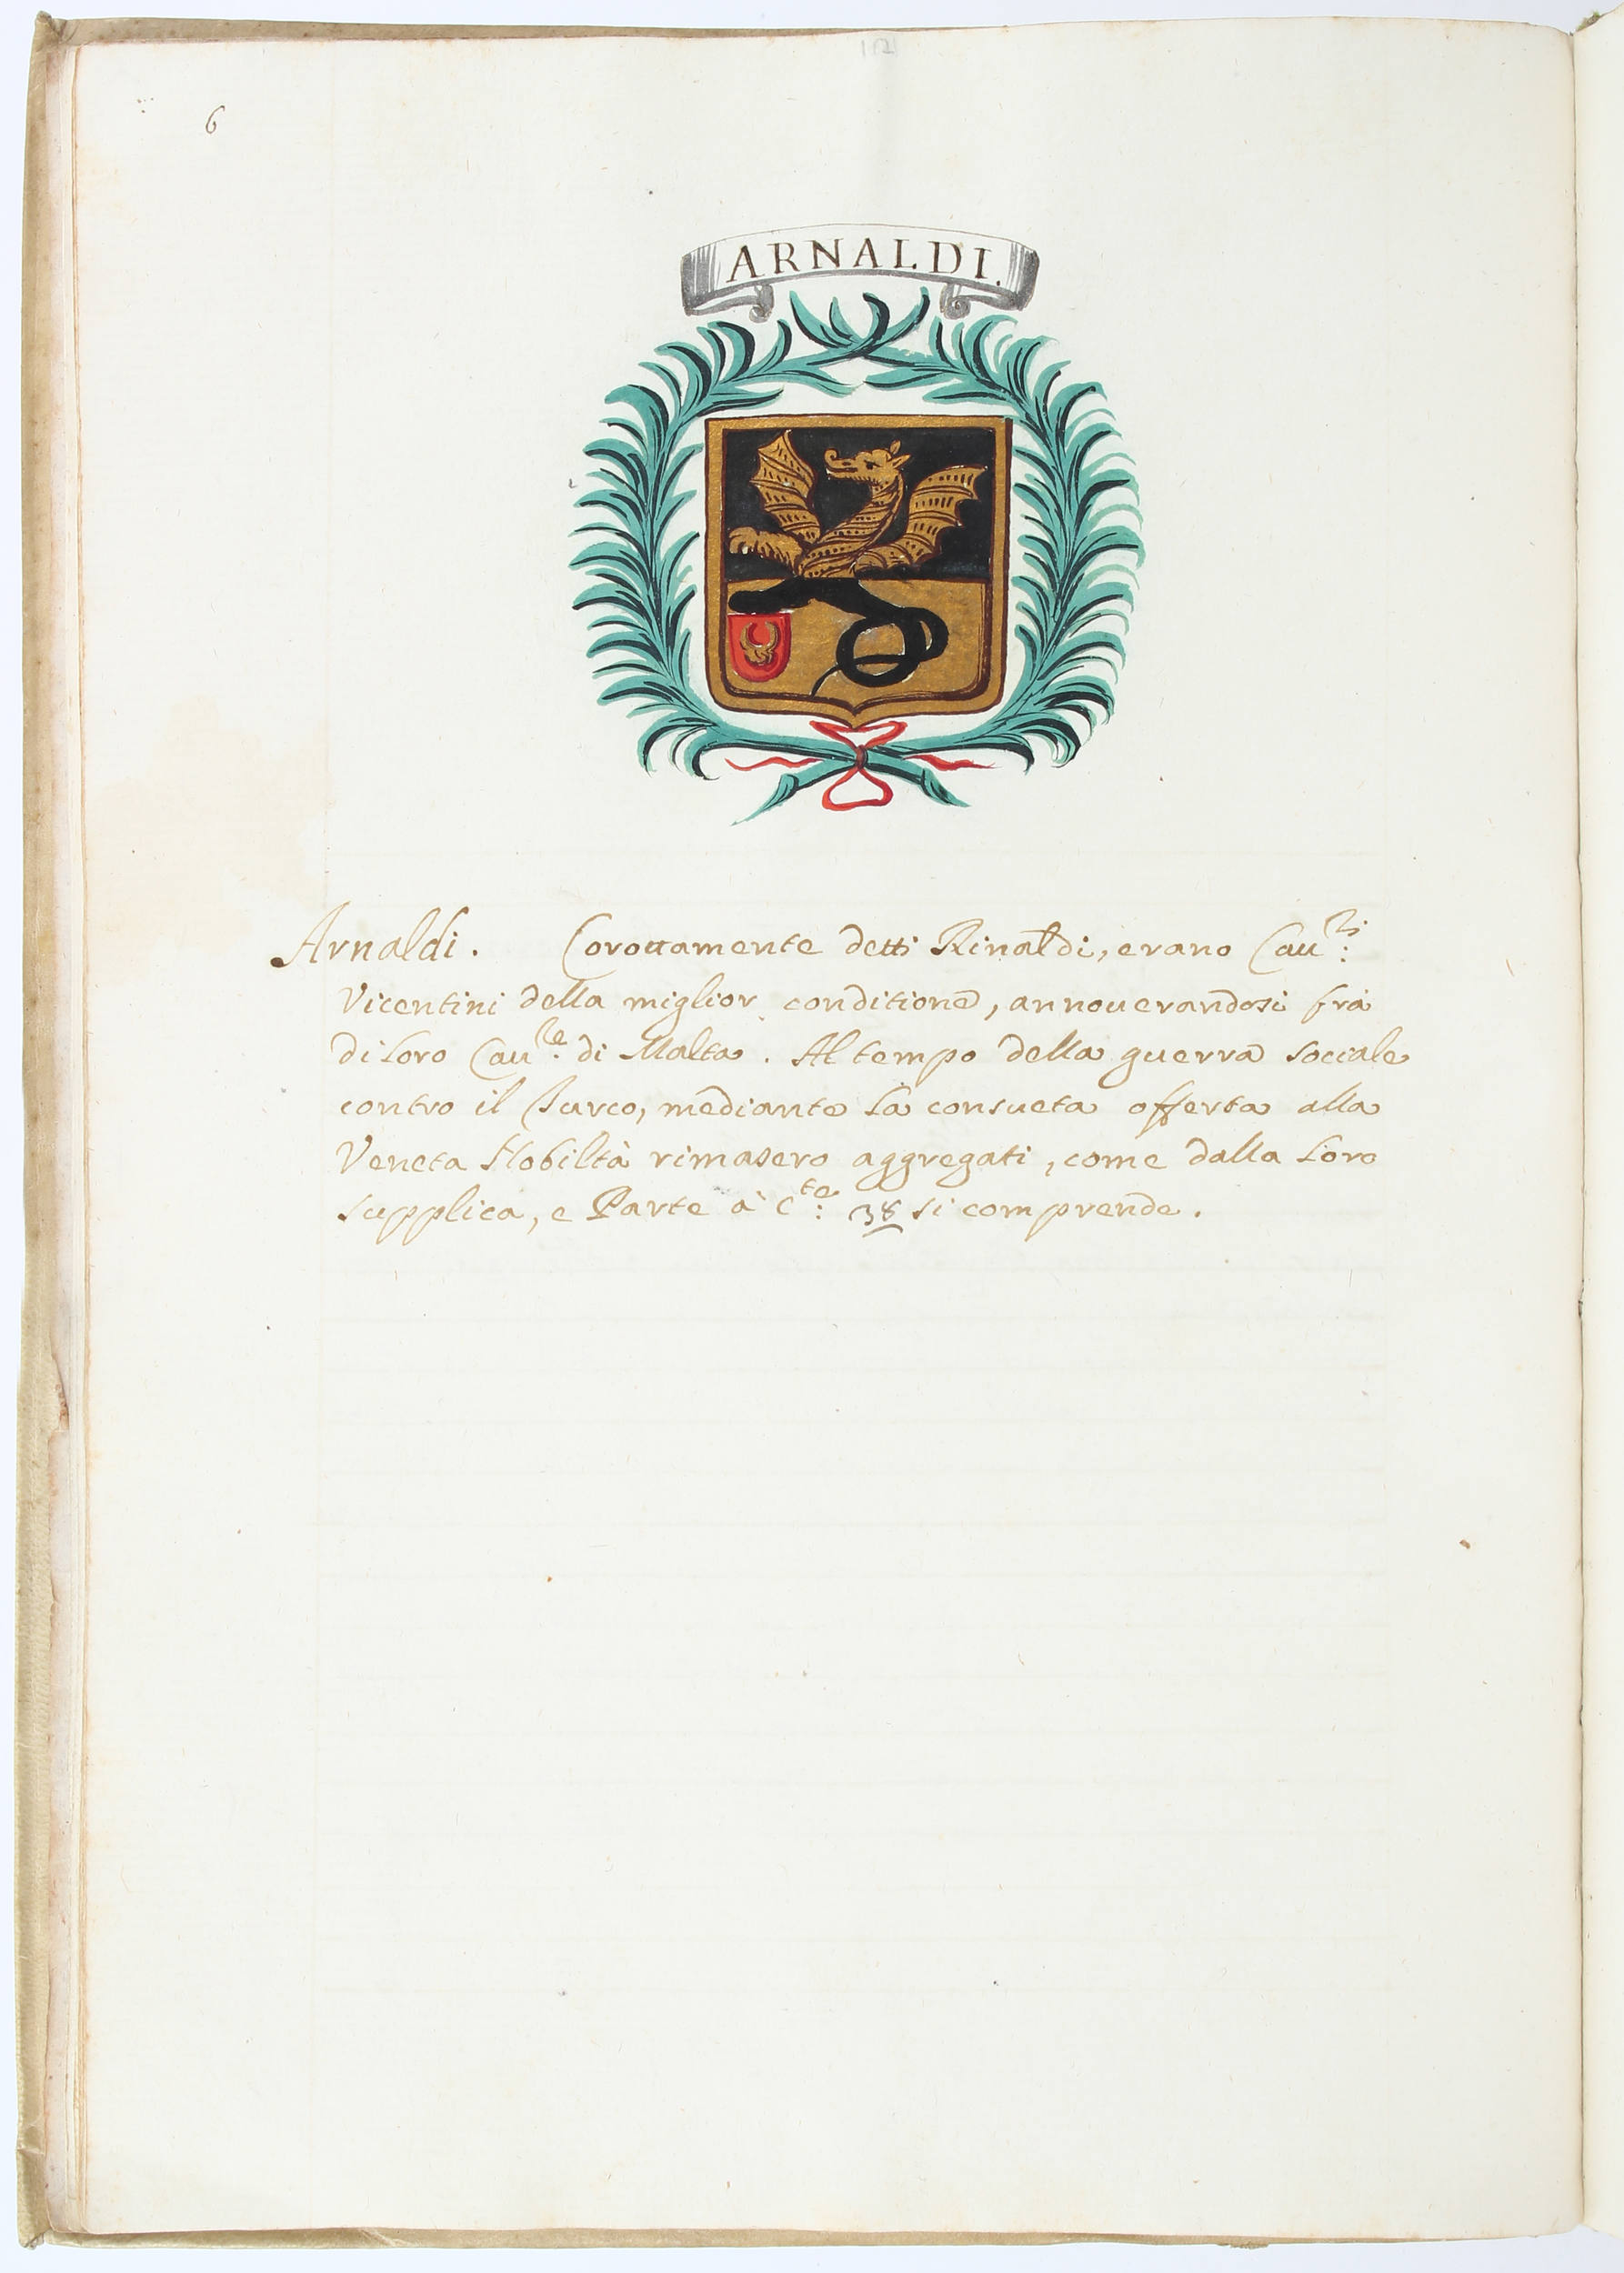 6
ARNALDI.
Arnaldi. Corottamente detti Rinaldi, erano Cau.ri
Vicentini della miglior conditione, annouerandosi frà
di loro Cau.re di Malta. Al tempo della guerra sociale
contro il Turco, mediante la consueta offerta alla
Veneta Nobiltà rimasero aggregati, come dalla loro
supplica, e Parte à C.te: 38 si comprende.